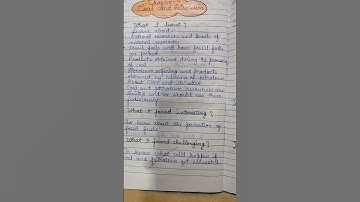 Chapter
Coal and Petroleum
What I learnt?
Learnt about:
Natural resources and kinds of
natural resources
Fossil fuels and how fossil fuels
are formed
Products obtained during the processing
of coal
Petroleum refining and products
obtained by refining of petroleum
About CNG and its uses
Coal and petroleum resources are
limited will we should use them
judiciously
What I found interesting?
To learn about the formation of
fossil fuels
What I found challenging?
To know what will happen if
coal and petroleum get exhausted